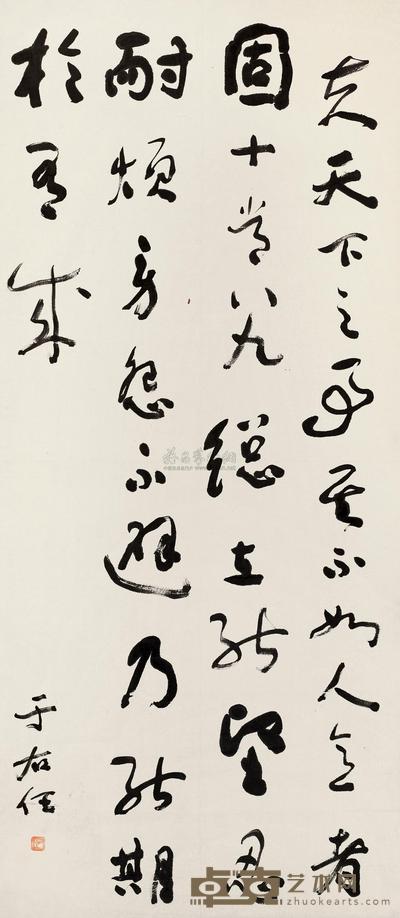 夫天下之事其不如人意者
固十常八九總在能堅忍
耐煩勞怨不避乃能期
於有成
于右任
卓克艺术网
zhuokearts.com